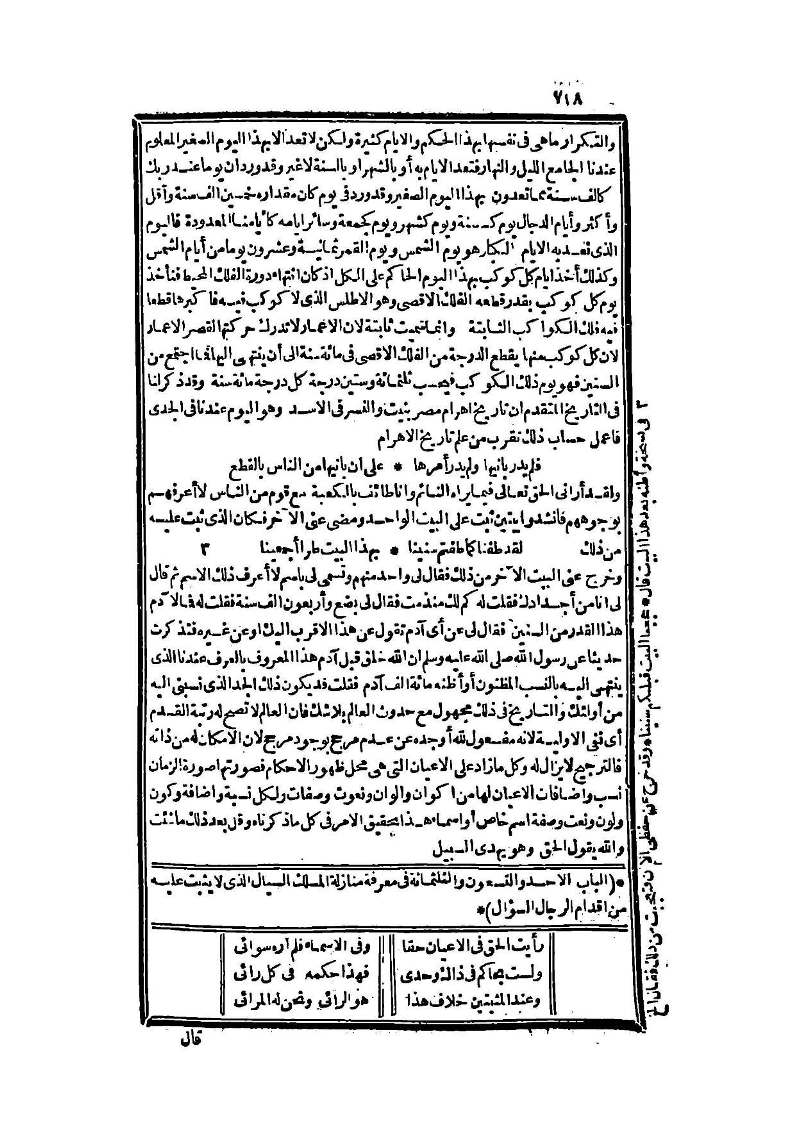 ٧١٨
والتكرار ما هى فى نفسها بهذا الحكم والايام كثيرة ولكن لا تعد الا بهذا اليوم الصغير المعلوم
عندنا الجامع الليل والنهار فتعد الايام به أو بالشهر او بالسنة لا غير وقد ورد ان يوما عند ربك
كالف سنة مما تعدون بهذا اليوم الصغير وقد ورد فى يوم كان مقداره خمسين الف سنة وأقل
وأكثر وأيام الدجال يوم كسنة ويوم كشهر ويوم كجمعة وسائر ايامه كايامنا المعدودة فاليوم
الذى نعد به الايام الكبار هو يوم الشمس ويوم القمر ثمانية وعشرون يوما من أيام الشمس
وكذلك أخذ ايام كل كوكب بهذا اليوم الحاكم على الكل اذ كان انتهاء دورة الفلك المحيط فنأخذ
يوم كل كوكب بقدر قطعه الفلك الاقصى وهو الاطلس الذى لا كوكب فيه فاكبرها قطعا
فيه فلك الكواكب الثابتة وانما سميت ثابتة لان الاعمار لا تدرك حركتها لقصر الاعمار
لان كل كوكب منها يقطع الدرجة من الفلك الاقصى فى مائة سنة الى أن ينتهى اليها فما اجتمع من
السنين فهو يوم ذلك الكوكب فيحسب ثلثمائة وستين درجة كل درجة مائة سنة وقد ذكر لنا
فى التاريخ المتقدم ان تاريخ اهرام مصر بنيت والنسر فى الاسد وهو اليوم عندنا فى الجدى
فاعمل حساب ذلك تقرب من علم تاريخ الاهرام
فلم يدر بانيها ولم يدر أمرها * على أن بانيها من الناس بالقطع
ولقد أرانى الحق تعالى فيما يراه النائم وانا طائف بالكعبة مع قوم من الناس لا أعرفهم
بوجوههم فانشدوا بيتين ثبت على البيت الواحد ومضى عنى الآخر فكان الذى ثبت عليه
من ذلك لقد طفنا كما طفتم سنينا * بهذا البيت طرا أجمعينا ٣
وخرج عنى البيت الآخر من ذلك فقال لى واحد منهم وتسمى لى باسم لا أعرف ذلك الاسم ثم قال
لى انا من أجدادك فقلت له كم لك منذ مت فقال لى بضع وأربعون الف سنة فقلت له فما لآدم
هذا القدر من السنين فقال لى عن أى آدم تقول عن هذا الاقرب اليك او عن غيره فتذكرت
حديثا عن رسول الله صلى الله عليه وسلم ان الله خلق قبل آدم هذا المعروف بالعرف عندنا الذى
ينتهى اليه بالنسب المظنون أو أظنه مائة الف آدم فقلت قد يكون ذلك الجد الذى نسبنى اليه
من أولئك والتاريخ فى ذلك مجهول مع حدوث العالم بلا شك فان العالم لا تصح له رتبة القدم
أى فى الاولية لانه مفعول لله أوجده عن عدم مرجح بوجود مرجح لان الامكان له من ذاته
فالترجيح لا يزال له وكل ما زاد على الاعيان التى هى محل ظهور الاحكام فصورتها صورة الزمان
نسب واضافات الاعيان لها من اكوان والوان ونعوت وصفات ولكل نسبة واضافة وكون
ولون ونعت وصفة اسم خاص أو اسماء هذا تحقيق الامر فى كل ما ذكرناه وقل بعد ذلك ما شئت
والله يقول الحق وهو يهدى السبيل
*(الباب الاحد والتسعون والثلثمائة فى معرفة منازلة المسلك السيال الذى لا يثبت عليه
من اقدام الرجال السؤال)*
رأيت الحق فى الاعيان حقا وفى الاسماء فلم أره سوائى
ولست بحاكم فى ذاك وحدى فهذا حكمه فى كل رائى
وعند المثبتين خلاف هذا هو الرائى ونحن له المرائى
قال
٣ فى نسخة وأظنه بعد هذا البيت قال * حججنا البيت قبلكم سنينا * وقد خرج عن حفظى الآن فتعجبت من ذلك فقال الخ